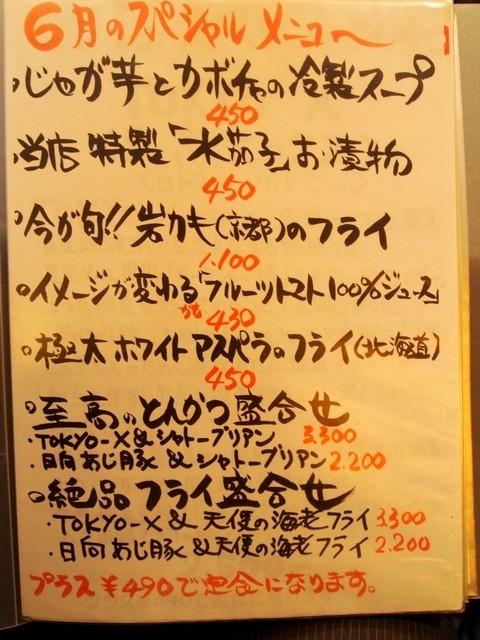 6月のスペシャルメニュ〜
・じゃが芋とカボチャの冷製スープ
450
・当店特製「水茄子」お漬物
450
・今が旬!!岩カキ(京都)のフライ
1.100
・イメージが変わる「フルーツトマト100%ジュース」
かも 430
・極太ホワイトアスパラのフライ(北海道)
450
・至高のとんかつ盛合せ
・TOKYO-X&シャトーブリアン 3.300
・日向あじ豚&シャトーブリアン 2.200
・絶品フライ盛合せ
・TOKYO-X&天使の海老フライ 3.300
・日向あじ豚&天使の海老フライ 2.200
プラス¥490で定食になります。